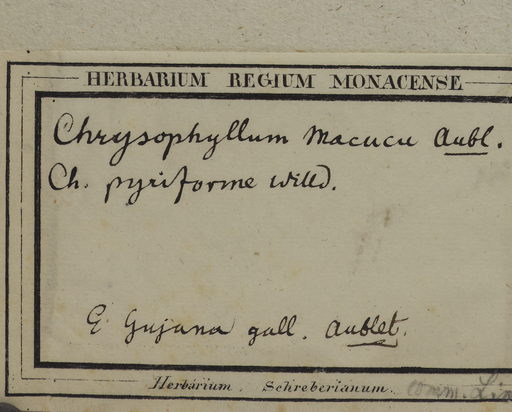 HERBARIUM REGIUM MONACENSE
Chrysophyllum Macucu Aubl.
Ch. pyriforme Willd.
E Gujana gall. Aublet.
Herbarium Schreberianum. comm.